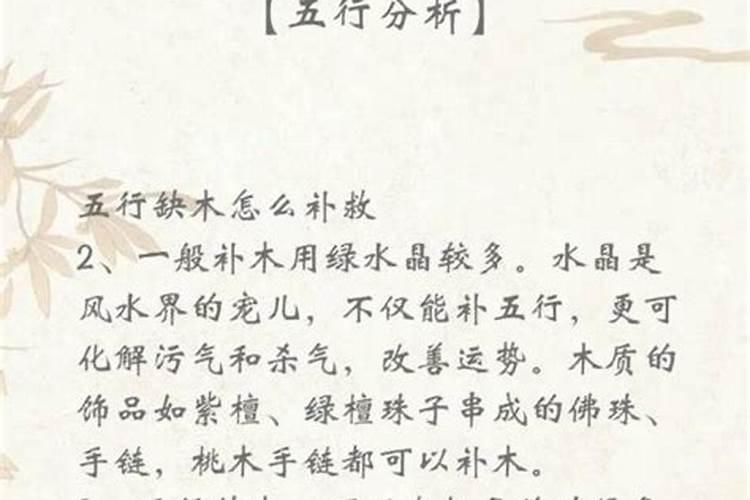 【五行分析】
五行缺木怎么补救
2、一般补木用绿水晶较多。水晶是
风水界的宠儿，不仅能补五行，更可
化解污气和杀气，改善运势。木质的
饰品如紫檀、绿檀珠子串成的佛珠、
手链，桃木手链都可以补木。